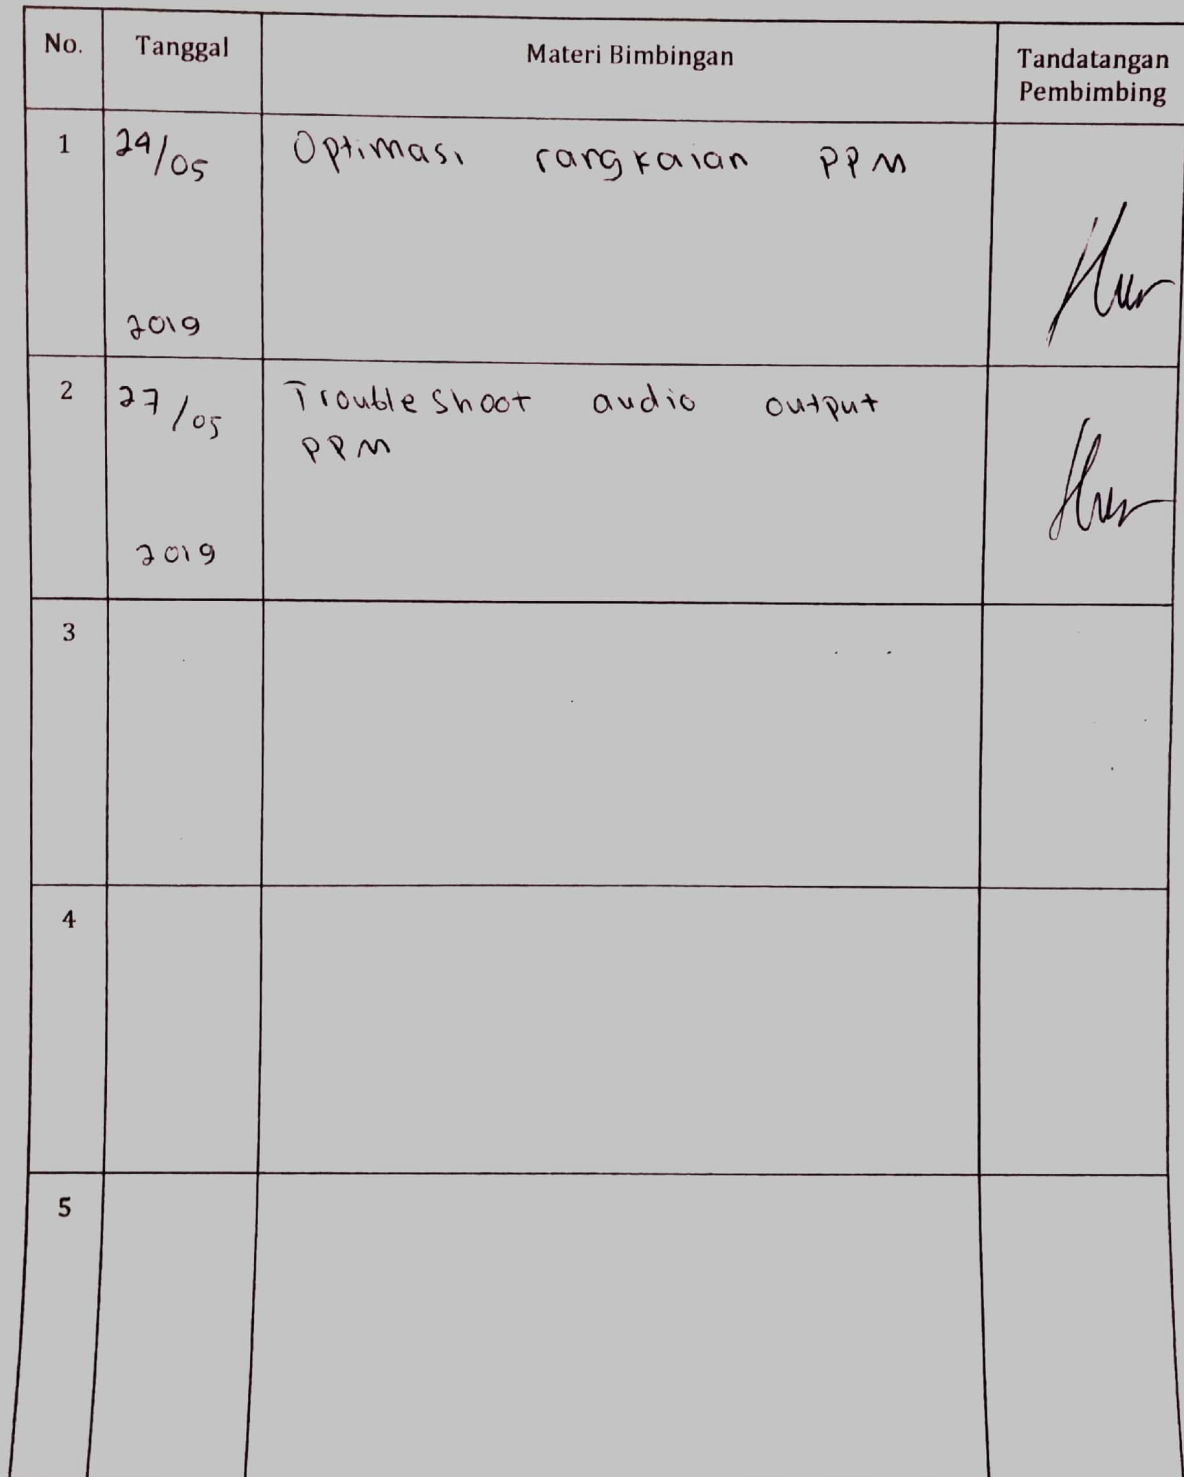 No. Tanggal Materi Bimbingan Tandatangan
Pembimbing
1 24/05 Optimasi rangkaian PPM
2019
2 27/05 Troubleshoot audio output
PPM
2019
3
4
5